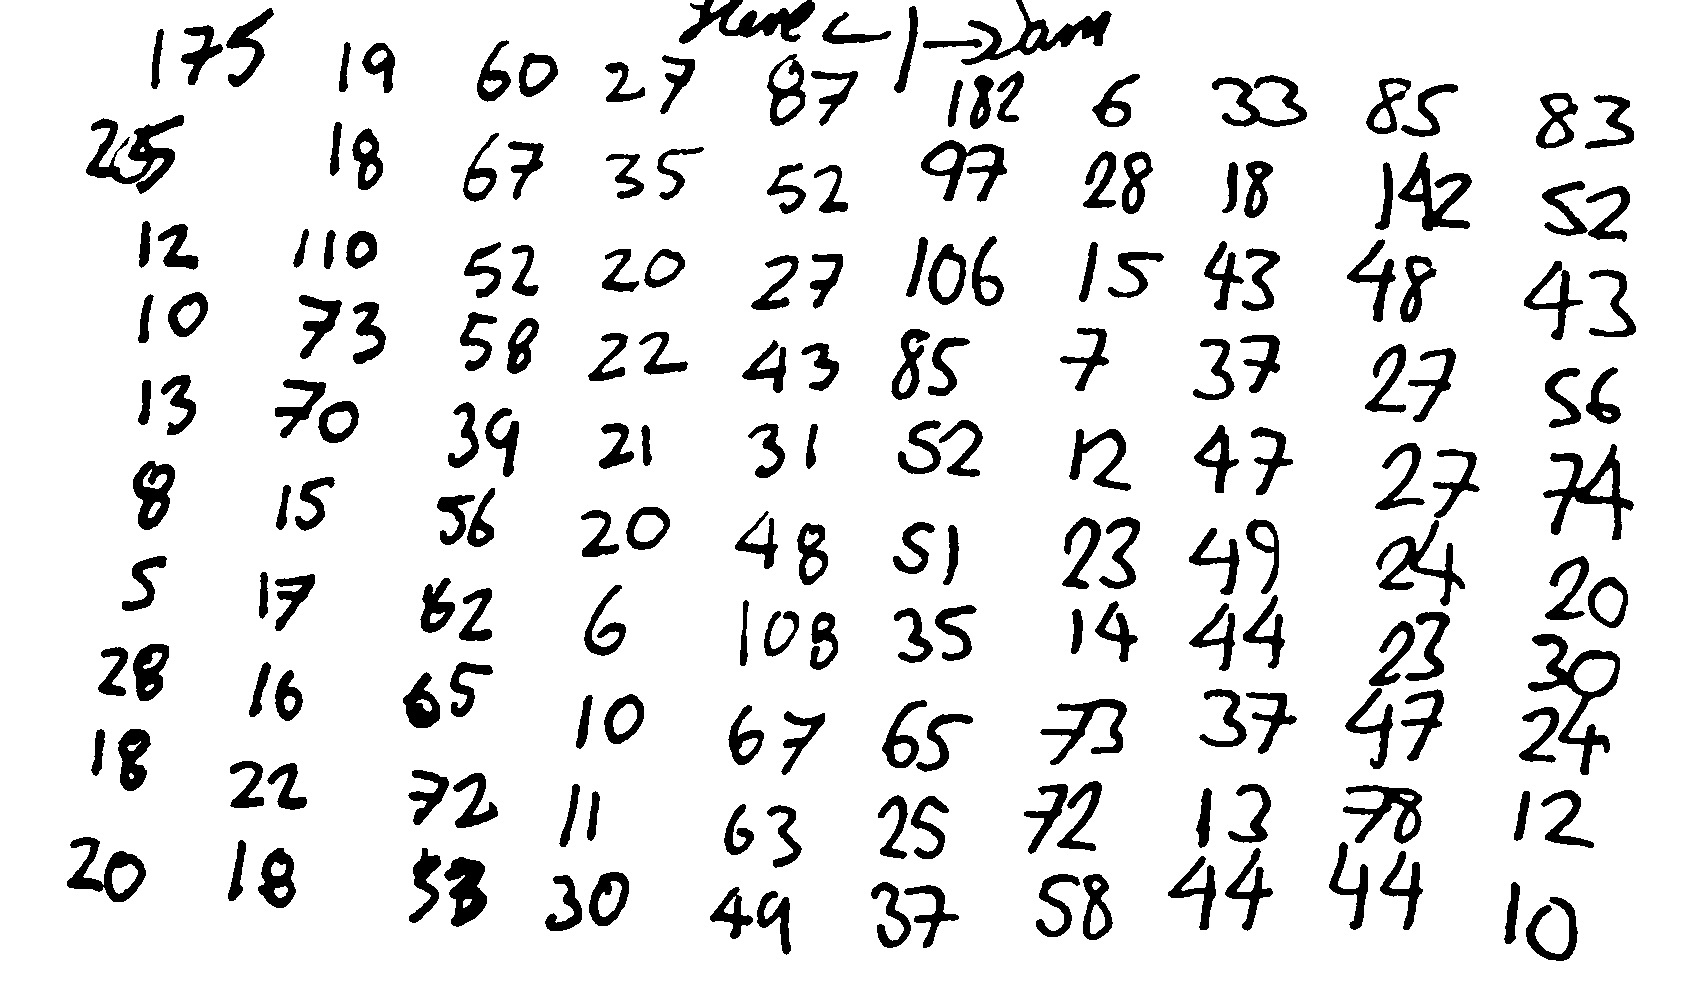 ← | →
175 19 60 27 87 182 6 33 85 83
25 18 67 35 52 97 28 18 142 52
12 110 52 20 27 106 15 43 48 43
10 73 58 22 43 85 7 37 27 56
13 70 39 21 31 52 12 47 27 74
8 15 56 20 48 51 23 49 24 20
5 17 62 6 108 35 14 44 23 30
28 16 65 10 67 65 73 37 47 24
18 22 72 11 63 25 72 13 78 12
20 18 53 30 49 37 58 44 44 10